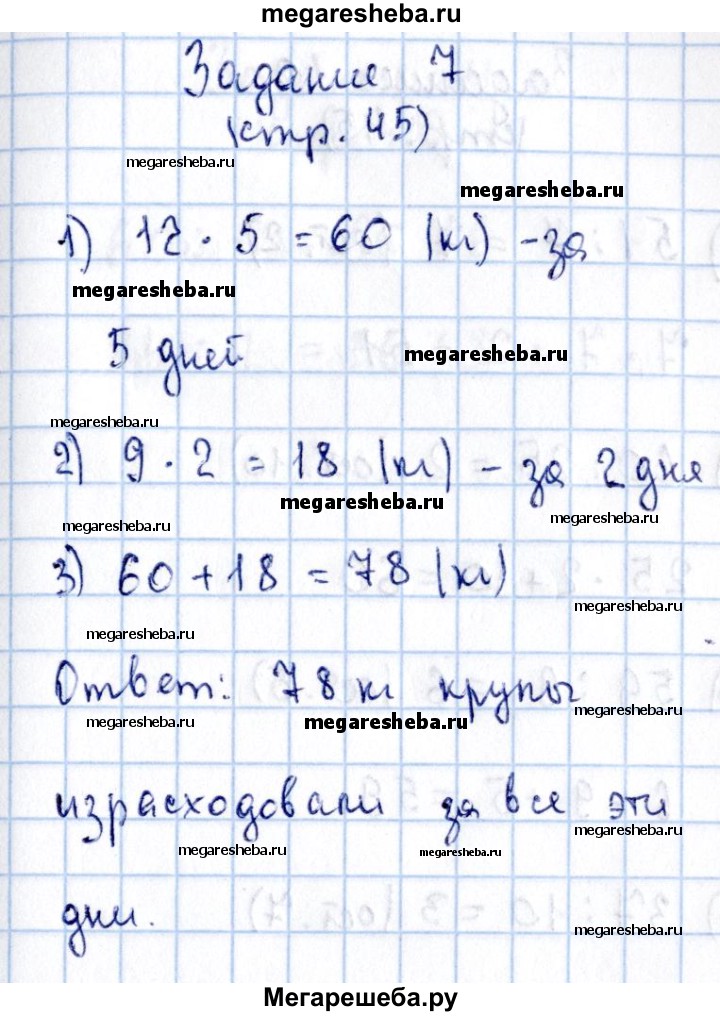 megaresheba.ru
Задание 7
(стр. 45)
megaresheba.ru
megaresheba.ru
1) 12 · 5 = 60 (кг) - за
megaresheba.ru
5 дней
megaresheba.ru
megaresheba.ru
2) 9 · 2 = 18 (кг) - за 2 дня
megaresheba.ru
megaresheba.ru
megaresheba.ru
3) 60 + 18 = 78 (кг)
megaresheba.ru
megaresheba.ru
Ответ: 78 кг крупы
megaresheba.ru
megaresheba.ru
megaresheba.ru
израсходовали за все эти
megaresheba.ru
megaresheba.ru
megaresheba.ru
дни.
megaresheba.ru
Мегарешеба.ру